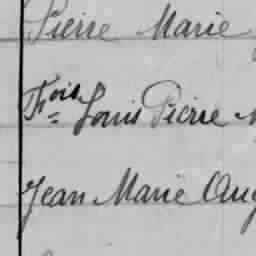 Pierre Marie
Fois Louis Pierre
Jean Marie Aug